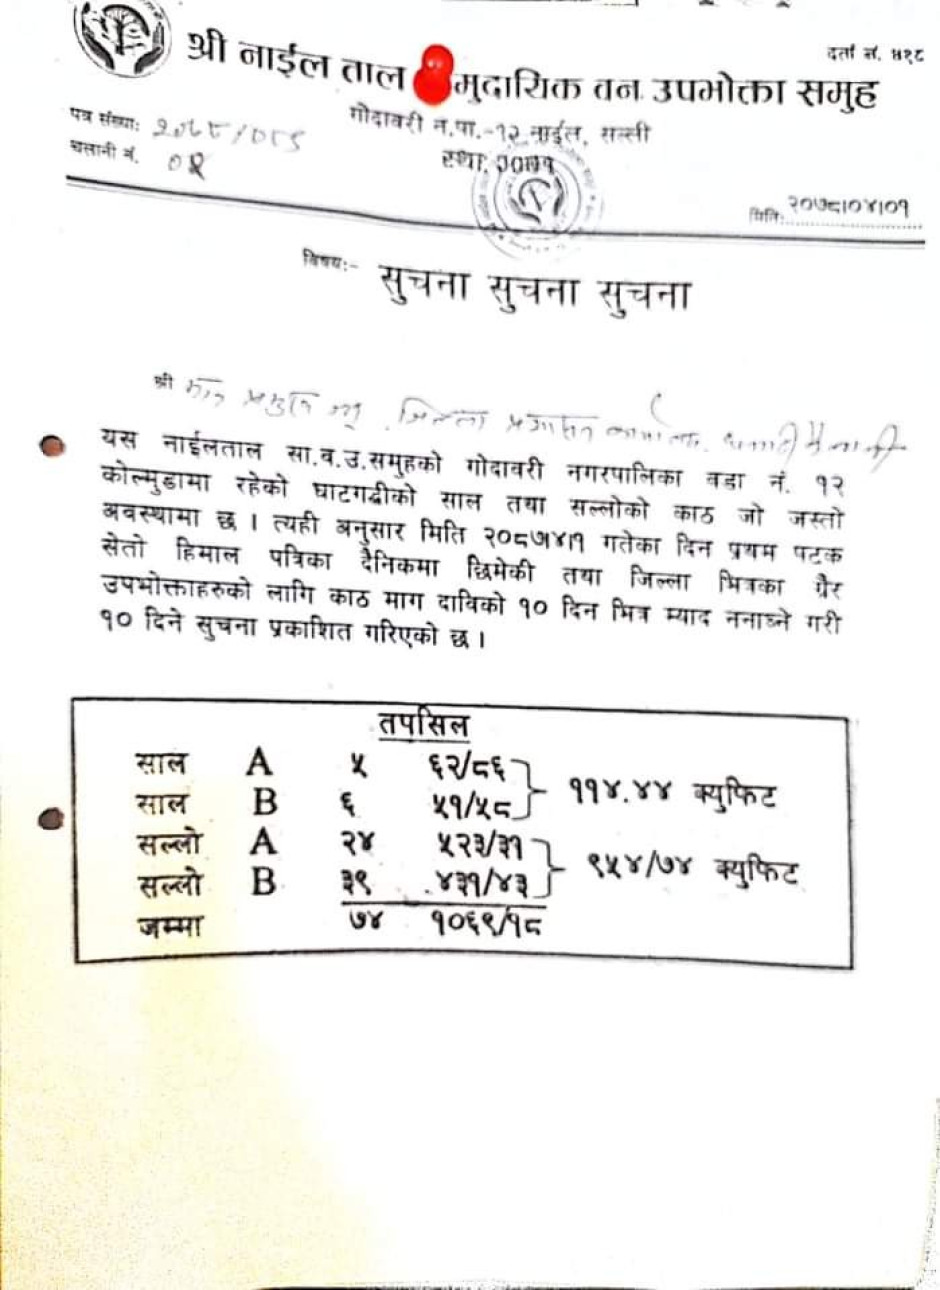 दर्ता नं. ५१८
श्री नाईल ताल मुदायिक वन उपभोक्ता समुह
पत्र संख्या:
गोदावरी न.पा.-१२ नाईल, सल्ली
चलानी नं. ०१
स्था.
मिति: २०७८।०४।०१
विषय:- सुचना सुचना सुचना
श्री जिल्ला प्रशासन कार्यालय
यस नाईलताल सा.व.उ.समुहको गोदावरी नगरपालिका वडा नं. १२
कोल्मुडामा रहेको घाटगद्दीको साल तथा सल्लोको काठ जो जस्तो
अवस्थामा छ । त्यही अनुसार मिति २०८७४।१ गतेका दिन प्रथम पटक
सेतो हिमाल पत्रिका दैनिकमा छिमेकी तथा जिल्ला भित्रका गैर
उपभोक्ताहरुको लागि काठ माग दाविको १० दिन भित्र म्याद ननाघ्ने गरी
१० दिने सुचना प्रकाशित गरिएको छ ।
तपसिल
साल A ५ ६२/८६
साल B ६ ५१/५८ ११४.४४ क्युफिट
सल्लो A २४ ५२३/३१
सल्लो B ३९ ४३१/४३ ९५४/७४ क्युफिट
जम्मा ७४ १०६९/१८